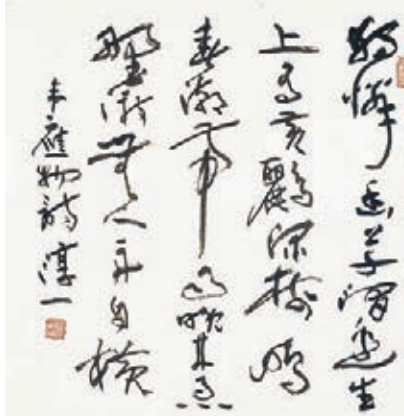 獨憐幽草澗邊生
上有黄鸝深樹鳴
春潮帶雨晚来急
野渡無人舟自横
韋應物詩淳一